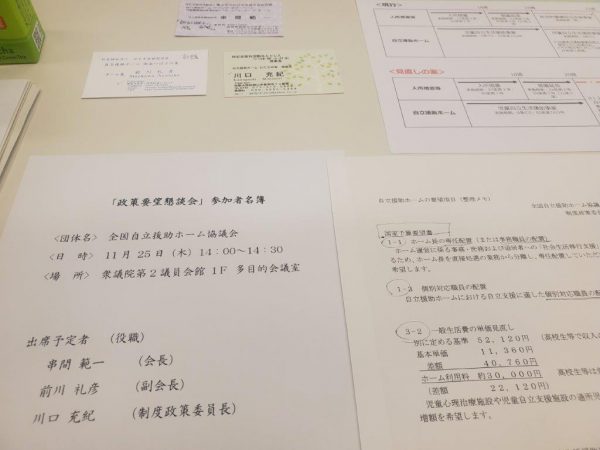 川口 充紀
<現行>
入所措置等
自立援助ホーム
<見直しの案>
入所措置等
自立援助ホーム
児童自立生活援助事業
「政策要望懇談会」参加者名簿
<団体名> 全国自立援助ホーム協議会
<日 時> 11月25日(木)14:00~14:30
<場 所> 衆議院第2議員会館 1F 多目的会議室
出席予定者 (役職)
串間 範一 (会長)
前川 礼彦 (副会長)
川口 充紀 (制度政策委員長)
自立援助ホームの要望項目(整理メモ)
全国自立援助ホーム協議
制度政策委
国家予算要望書
1-1 ホーム長の専任配置(または事務職員の配置)
ホーム運営に係る事務・庶務および退居者への「社会生活移行支援」
るため、ホーム長を直接処遇の業務から分離し、専任配置していただ
希望します。
1-3 個別対応職員の配置
自立援助ホームにおける自立支援に適した個別対応職員の配
3-2 一般生活費の単価見直し
別に定める基準 52,120円 (高校生等で収入の
基本単価 11,360円
差額 40,760円
ホーム利用料 約30,000円 高校生等は
(差額 22,120円)
児童心理治療施設や児童自立支援施設の通所児
増額を希望します。